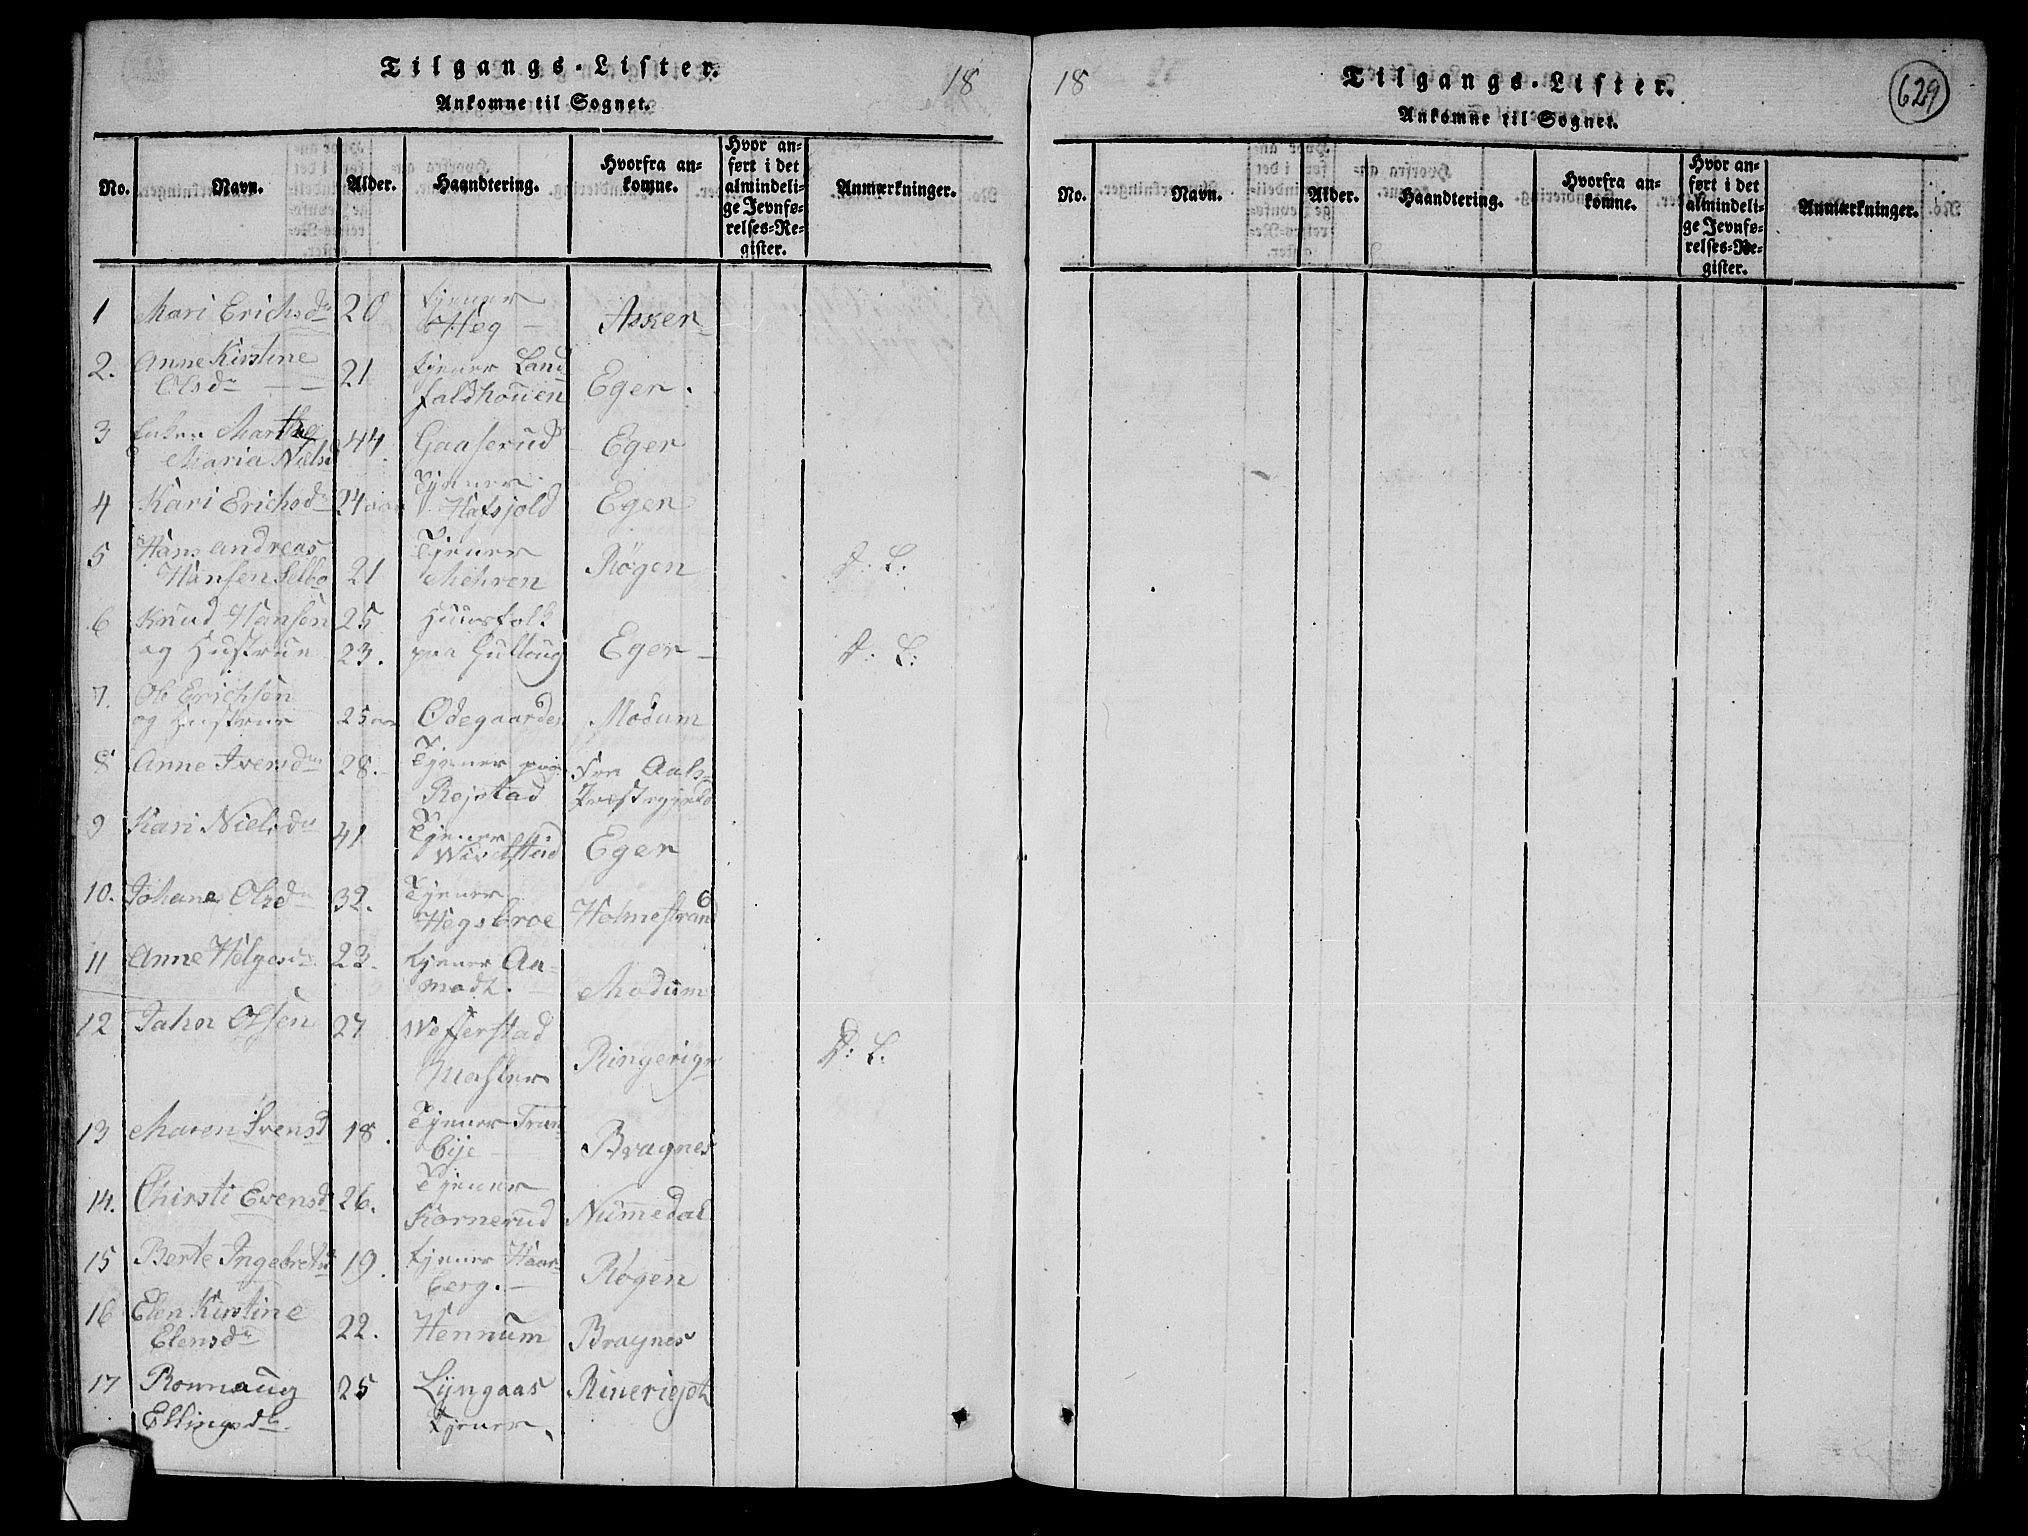 Tilgangs-Lister. 18
Ankomne til Sognet.
No. Navn. Alder. Haandtering. Hvorfra an-komne. Hvor an-ført i det almindeli-ge Jevnfø-relses-Re-gister. Anmærkninger.
1 Mari Erichsdr 20 tjener Hæg Asker
2. Anne Kirstine Olsdr 21 tjener Land faldhouen Eger.
3 Marthe Maria Nielsd 44. Gaaserud Eger
4 Kari Erichsdr 24 aar Tjener Hafsjold Eger
5 Hans Andreas Hansen Selbo 21 Tjener Mehren Røgen D. L.
6 Knud Hansen og Hustrue 25 23. Huusfolk paa Gulloug Eger D: L:
7. Ole Erichsen og Hustrue 25 aar Ødegaarden Modum
8 Anne Iversdr 28. Tjener paa Rejstad Fra Aals Præstegjeld
9 Kari Nielsdr 41 Tjener Wivelstad Eger
10. Johane Olsdr 32. Tjener Hegsbroe Holmestrand
11 Anne Helgesdr 23. tjener Aa-modt. Modum
12 Jahn Olsen 27 Wefferstad Masler Ringerige D: L:
13 Maren Svensd 18. Tjener Tran-bye Bragnes
14. Chirsti Evensd 26. Tjener Kornerud Nummedal
15 Berte Ingebretsd 19. tjener Haar-berg. Røgen
16 Elen Kirstine Elensdr 22. Hennum Bragnes
17 Ronnaug Ellingsdr. 25 Lyngaas Tjener Rinerigst
18 Tilgangs-Lister. 629
Ankomne til Sognet.
No. Navn. Alder. Haandtering. Hvorfra an-komne. Hvor an-ført i det almindeli-ge Jevnfø-relses-Re-gister. Anmærkninger.